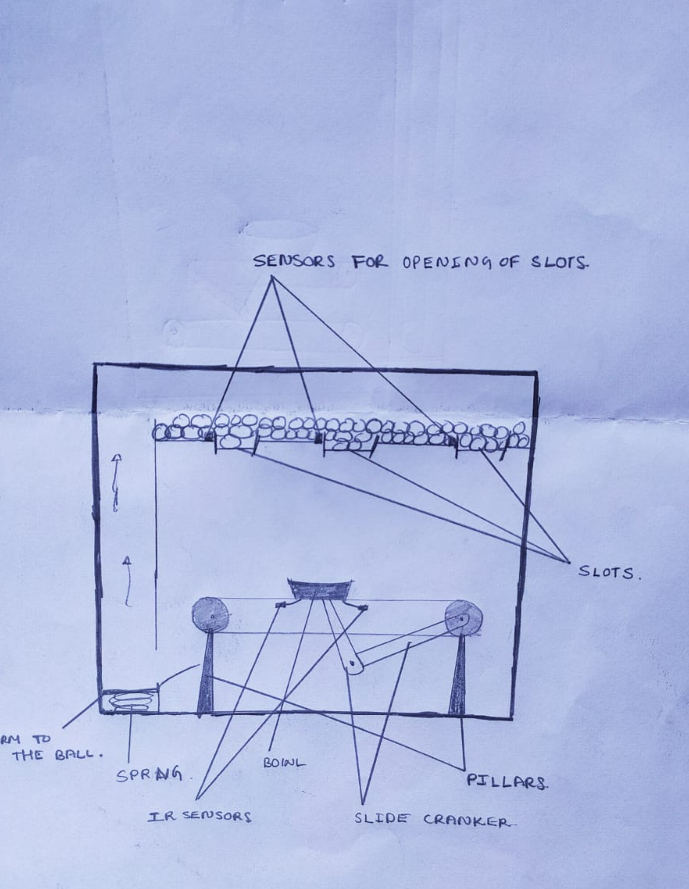 SENSORS FOR OPENING OF SLOTS.
SLOTS.
RM TO
THE BALL.
SPRING.
BOWL
PILLARS.
IR SENSORS
SLIDE CRANKER.